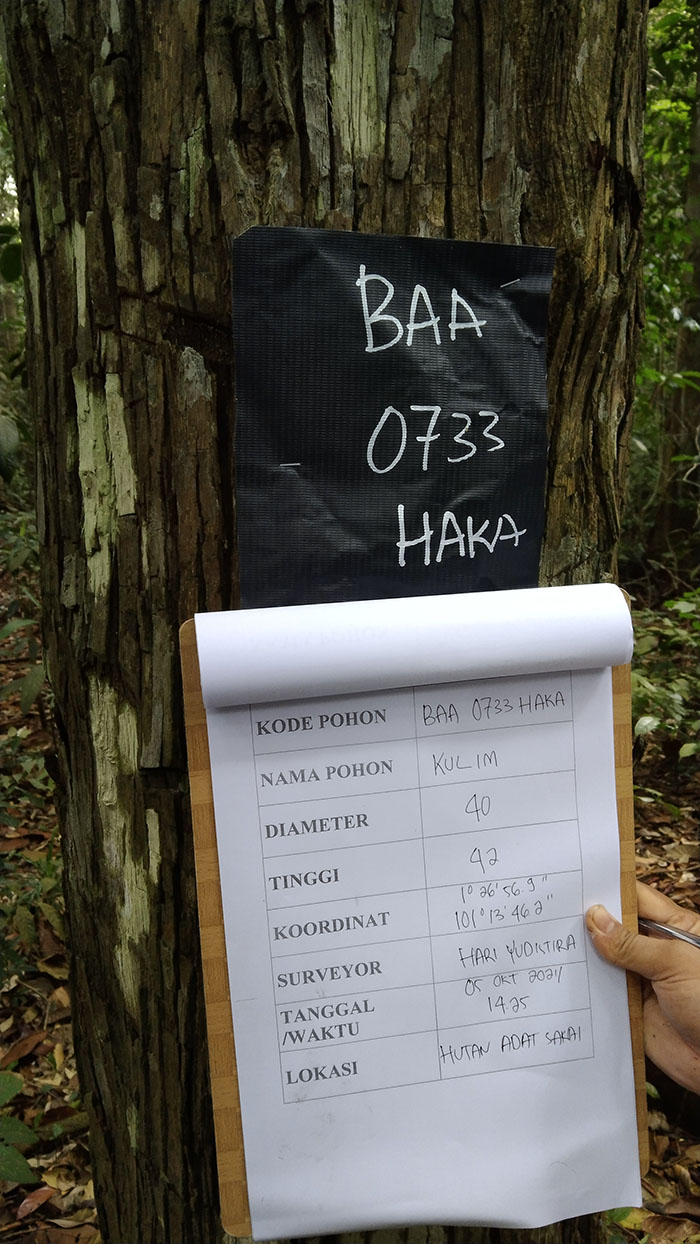 BAA
0733
HAKA
KODE POHON BAA 0733 HAKA
NAMA POHON KULIM
DIAMETER 40
TINGGI 42
KOORDINAT 1° 26' 56.9"
101° 13' 46.2"
SURVEYOR HARI YUDISTIRA
TANGGAL 05 OKT 2021/
/WAKTU 14.25
LOKASI HUTAN ADAT SAKAI